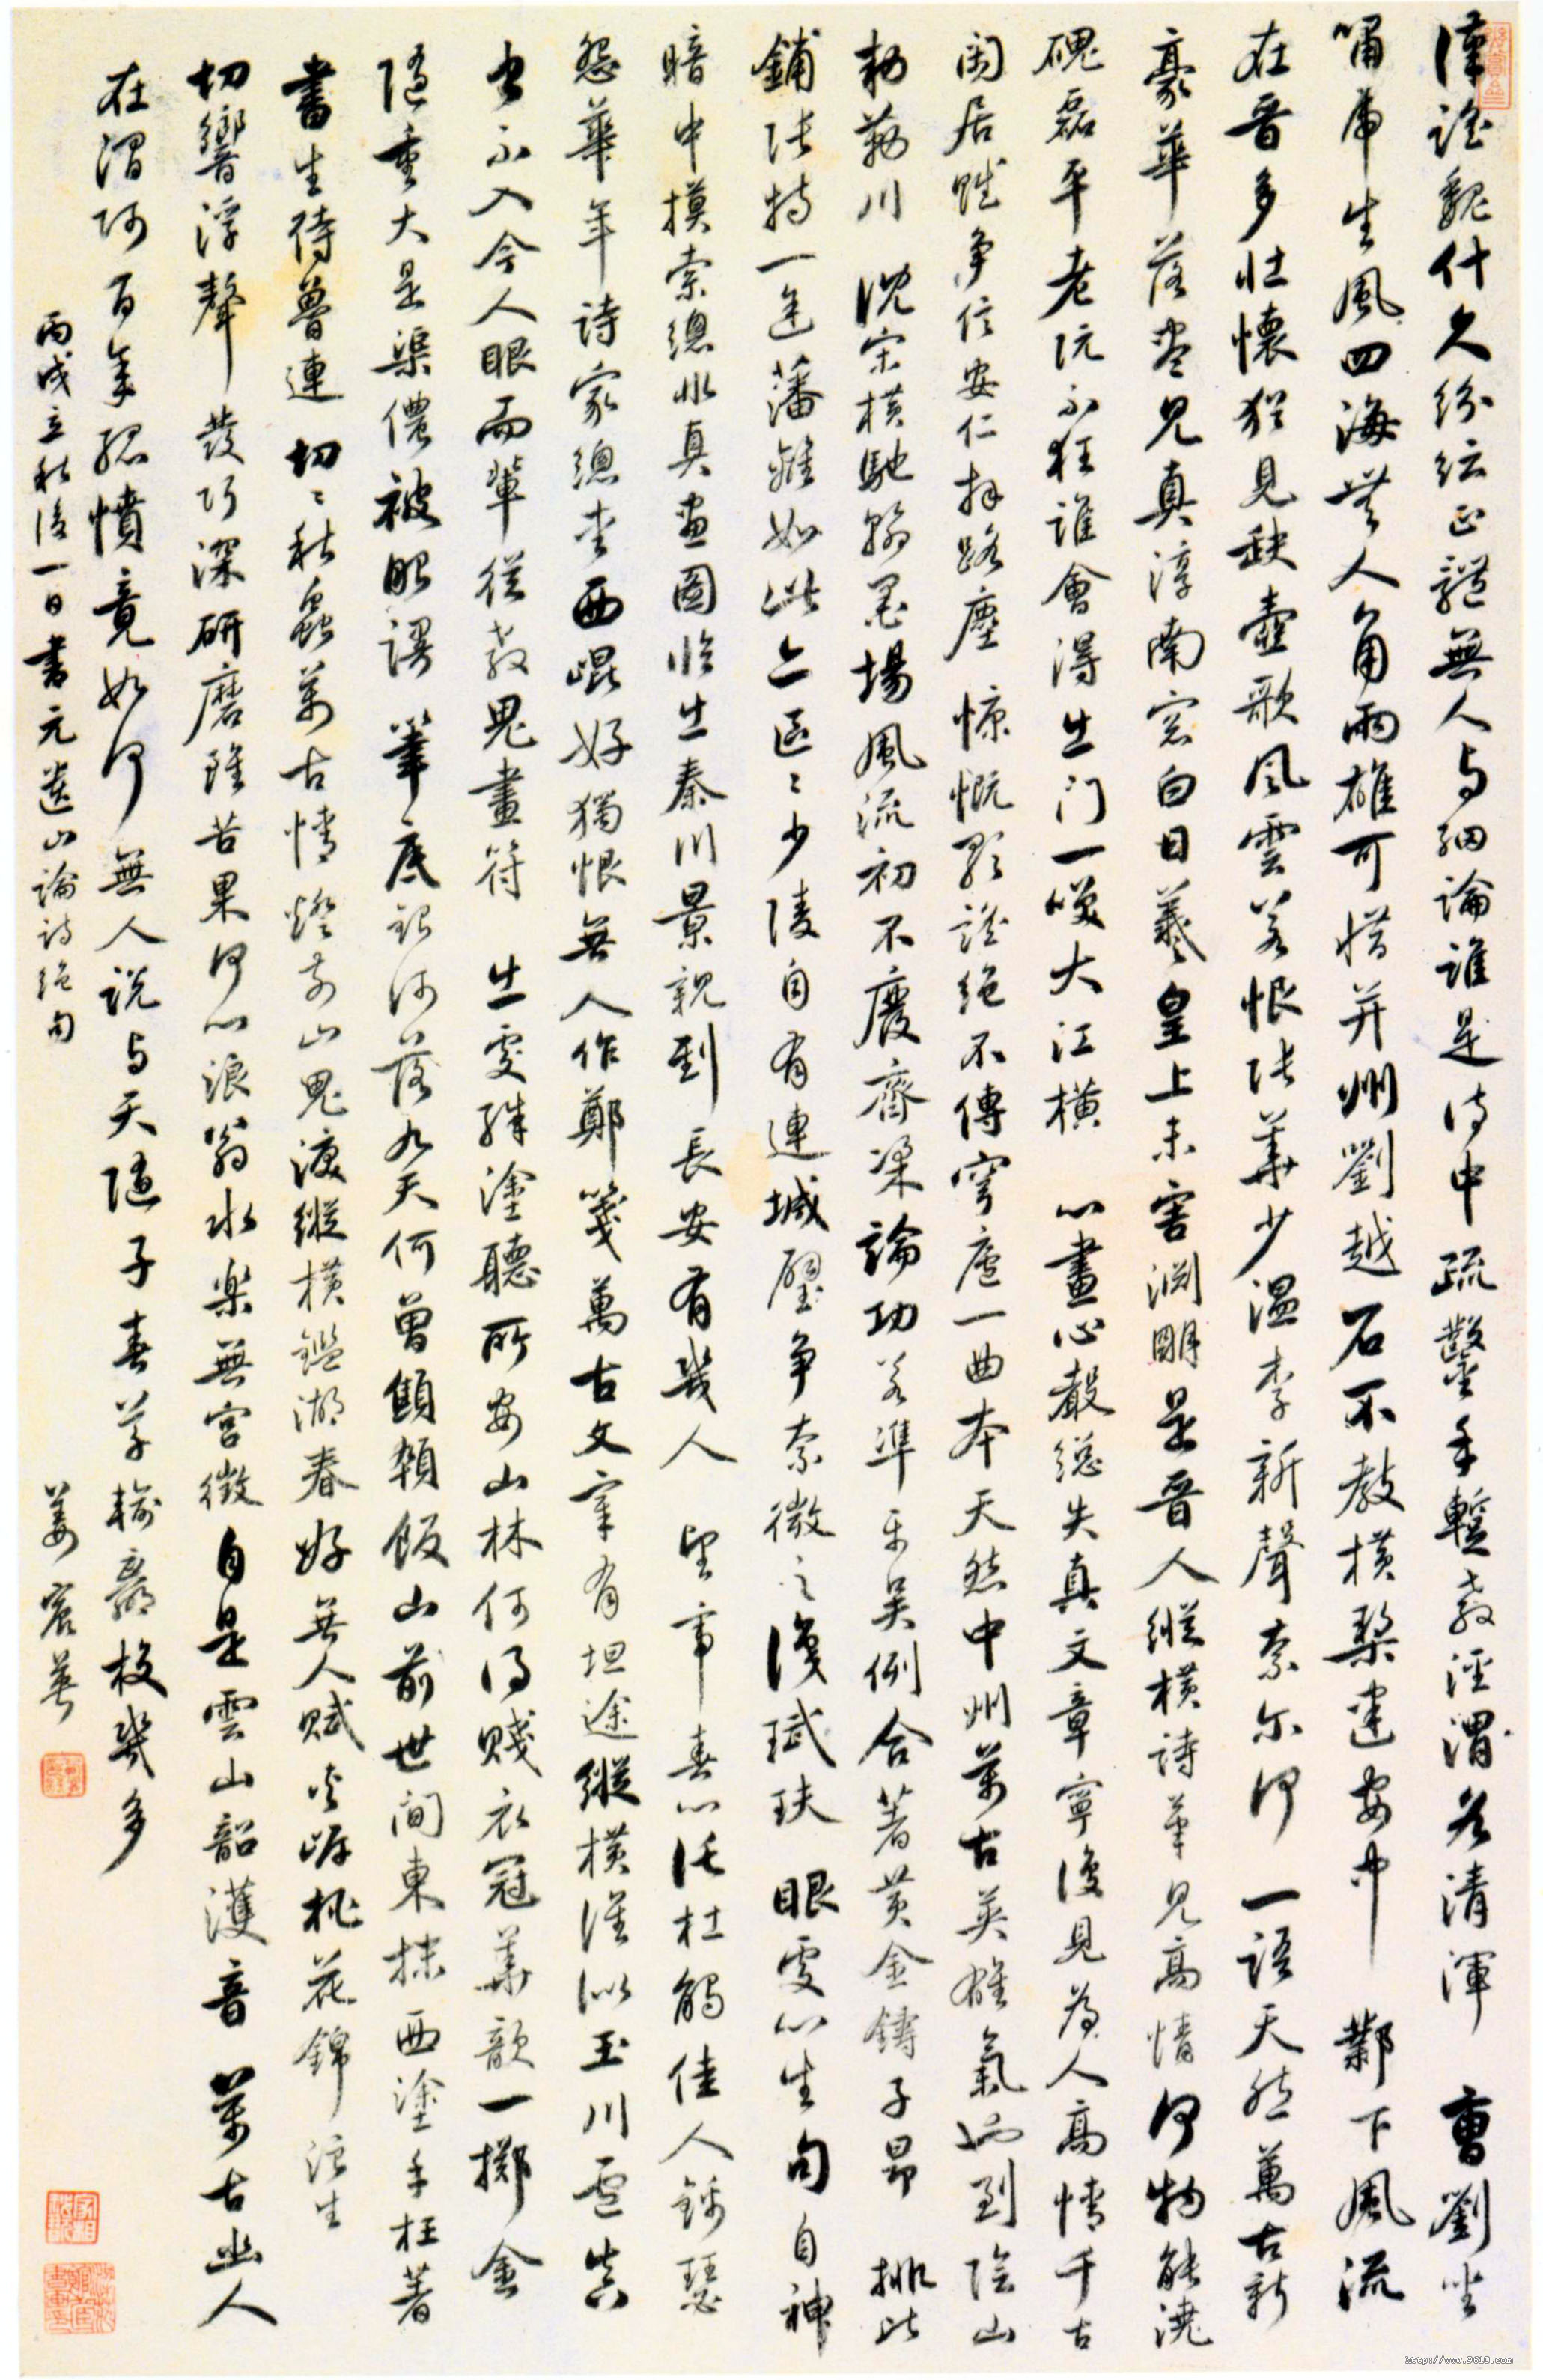 漢謠魏什久紛紜正體無人與細論誰是詩中疏鑿手暫教涇渭各清渾 曹劉坐
嘯虎生風四海無人角兩雄可惜并州劉越石不教橫槊建安中 鄴下風流
在晉多壯懷猶見缺壺歌風雲若恨張華少溫李新聲奈爾何 一語天然萬古新
豪華落盡見真淳南窗白日羲皇上未害淵明是晉人縱橫詩筆見高情何物能澆
磈磊平老阮不狂誰會得出門一笑大江橫 心畫心聲總失真文章寧復見為人高情千古
閑居賦爭信安仁拜路塵 慷慨歌謠絕不傳穹廬一曲本天然中州萬古英雄氣也到陰山
敕勒川 沈宋橫馳翰墨場風流初不廢齊梁論功若準平吳例合著黃金鑄子昂 排比
鋪張特一途藩籬如此亦區々少陵自有連城璧爭奈微之識珷玞 眼處心生句自神
暗中摸索總非真畫圖臨出秦川景親到長安有幾人 望帝春心託杜鵑佳人錦瑟
怨華年詩家總愛西崑好獨恨無人作鄭箋 萬古文章有坦途縱橫誰似玉川盧真
書不入今人眼兒輩從教鬼畫符 出處殊塗聽所安山林何得賤衣冠華歆一擲金
隨重大是渠儂被眼謾 筆底銀河落九天何曾憔悴飯山前世間東抹西塗手枉著
書生待魯連 切々秋蟲萬古情燈前山鬼淚縱橫鑑湖春好無人賦夾岸桃花錦浪生
切響浮聲發巧深研磨雖苦果何心浪翁水樂無宮徵自是雲山韶濩音 萬古幽人
在澗阿百年孤憤竟如何無人說與天隨子春草輸贏校幾多
丙戌立秋後一日書元遺山論詩絕句 姜宸英
http://www.9610.com